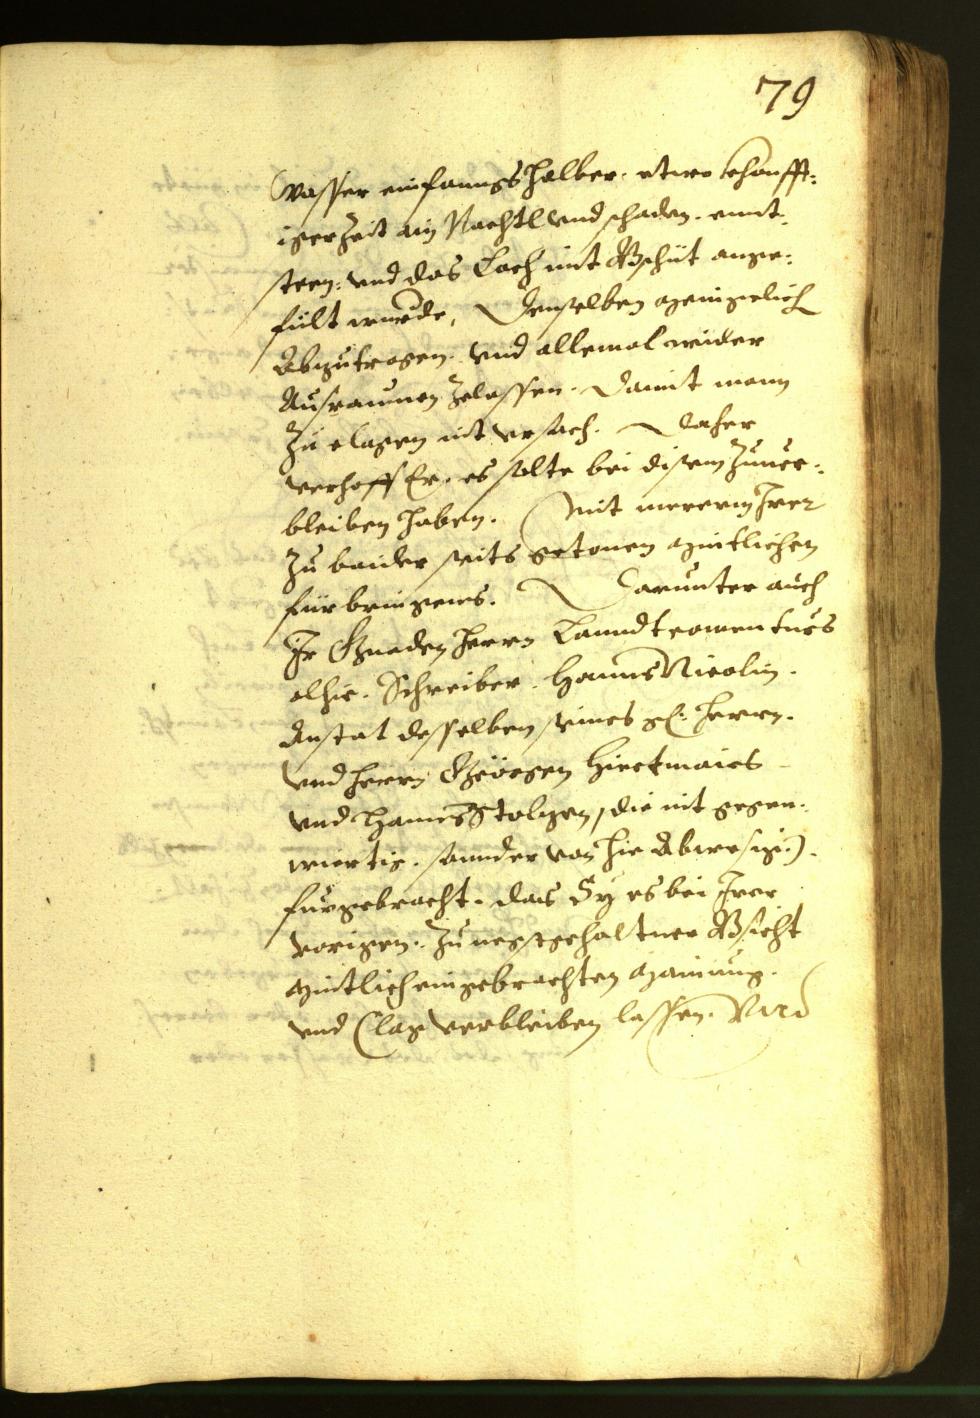 79
Wasser einfanngs halber. etwo khonfft-
iger Zeit ain Nachtl vnd schaden. ennt-
steen: vnd das Loch mit Gschüt ange-
fült wurde, Denselben genzgelich
Abzutragen. vnd allemal wider
Ausraumen Zelassen. Damit mann
Zu clagen nit vrsach. Daher
verhoff Er. es solte bei disem Zuuer-
bleiben haben. Mit mererm Irer
Zu baider seits getonen mintlichen
fürbringens. Darunter auch
Ir Gnaden Herrn Lanndtcomenturs
alhie. Schreiber. Hanns Nicolin.
Anstat desselben seines gl: Herrn.
vnd Herrn Geörgen Hiertmairs
vnd Hanns Stolzen, die nit gegen-
wiertig. sonnder von hie Abwesig:).
fürgebracht. das Sy es bei Irer
vorigen. Zu negstgehaltner Bsicht
mintlich eingebrachten mainung.
vnd Clag verbleiben lassen. Wird